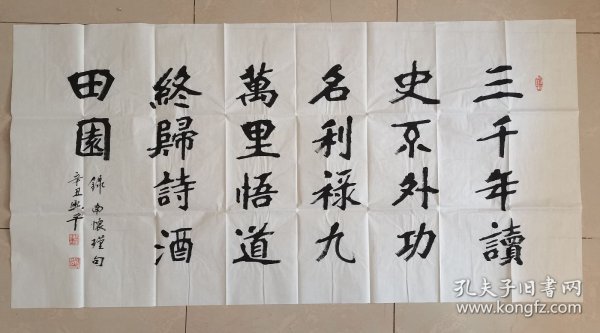 三千年讀
史不外功
名利祿九
萬里悟道
終歸詩酒
田園
錄南懷瑾句
辛丑
孔夫子旧书网
www.kongfz.com